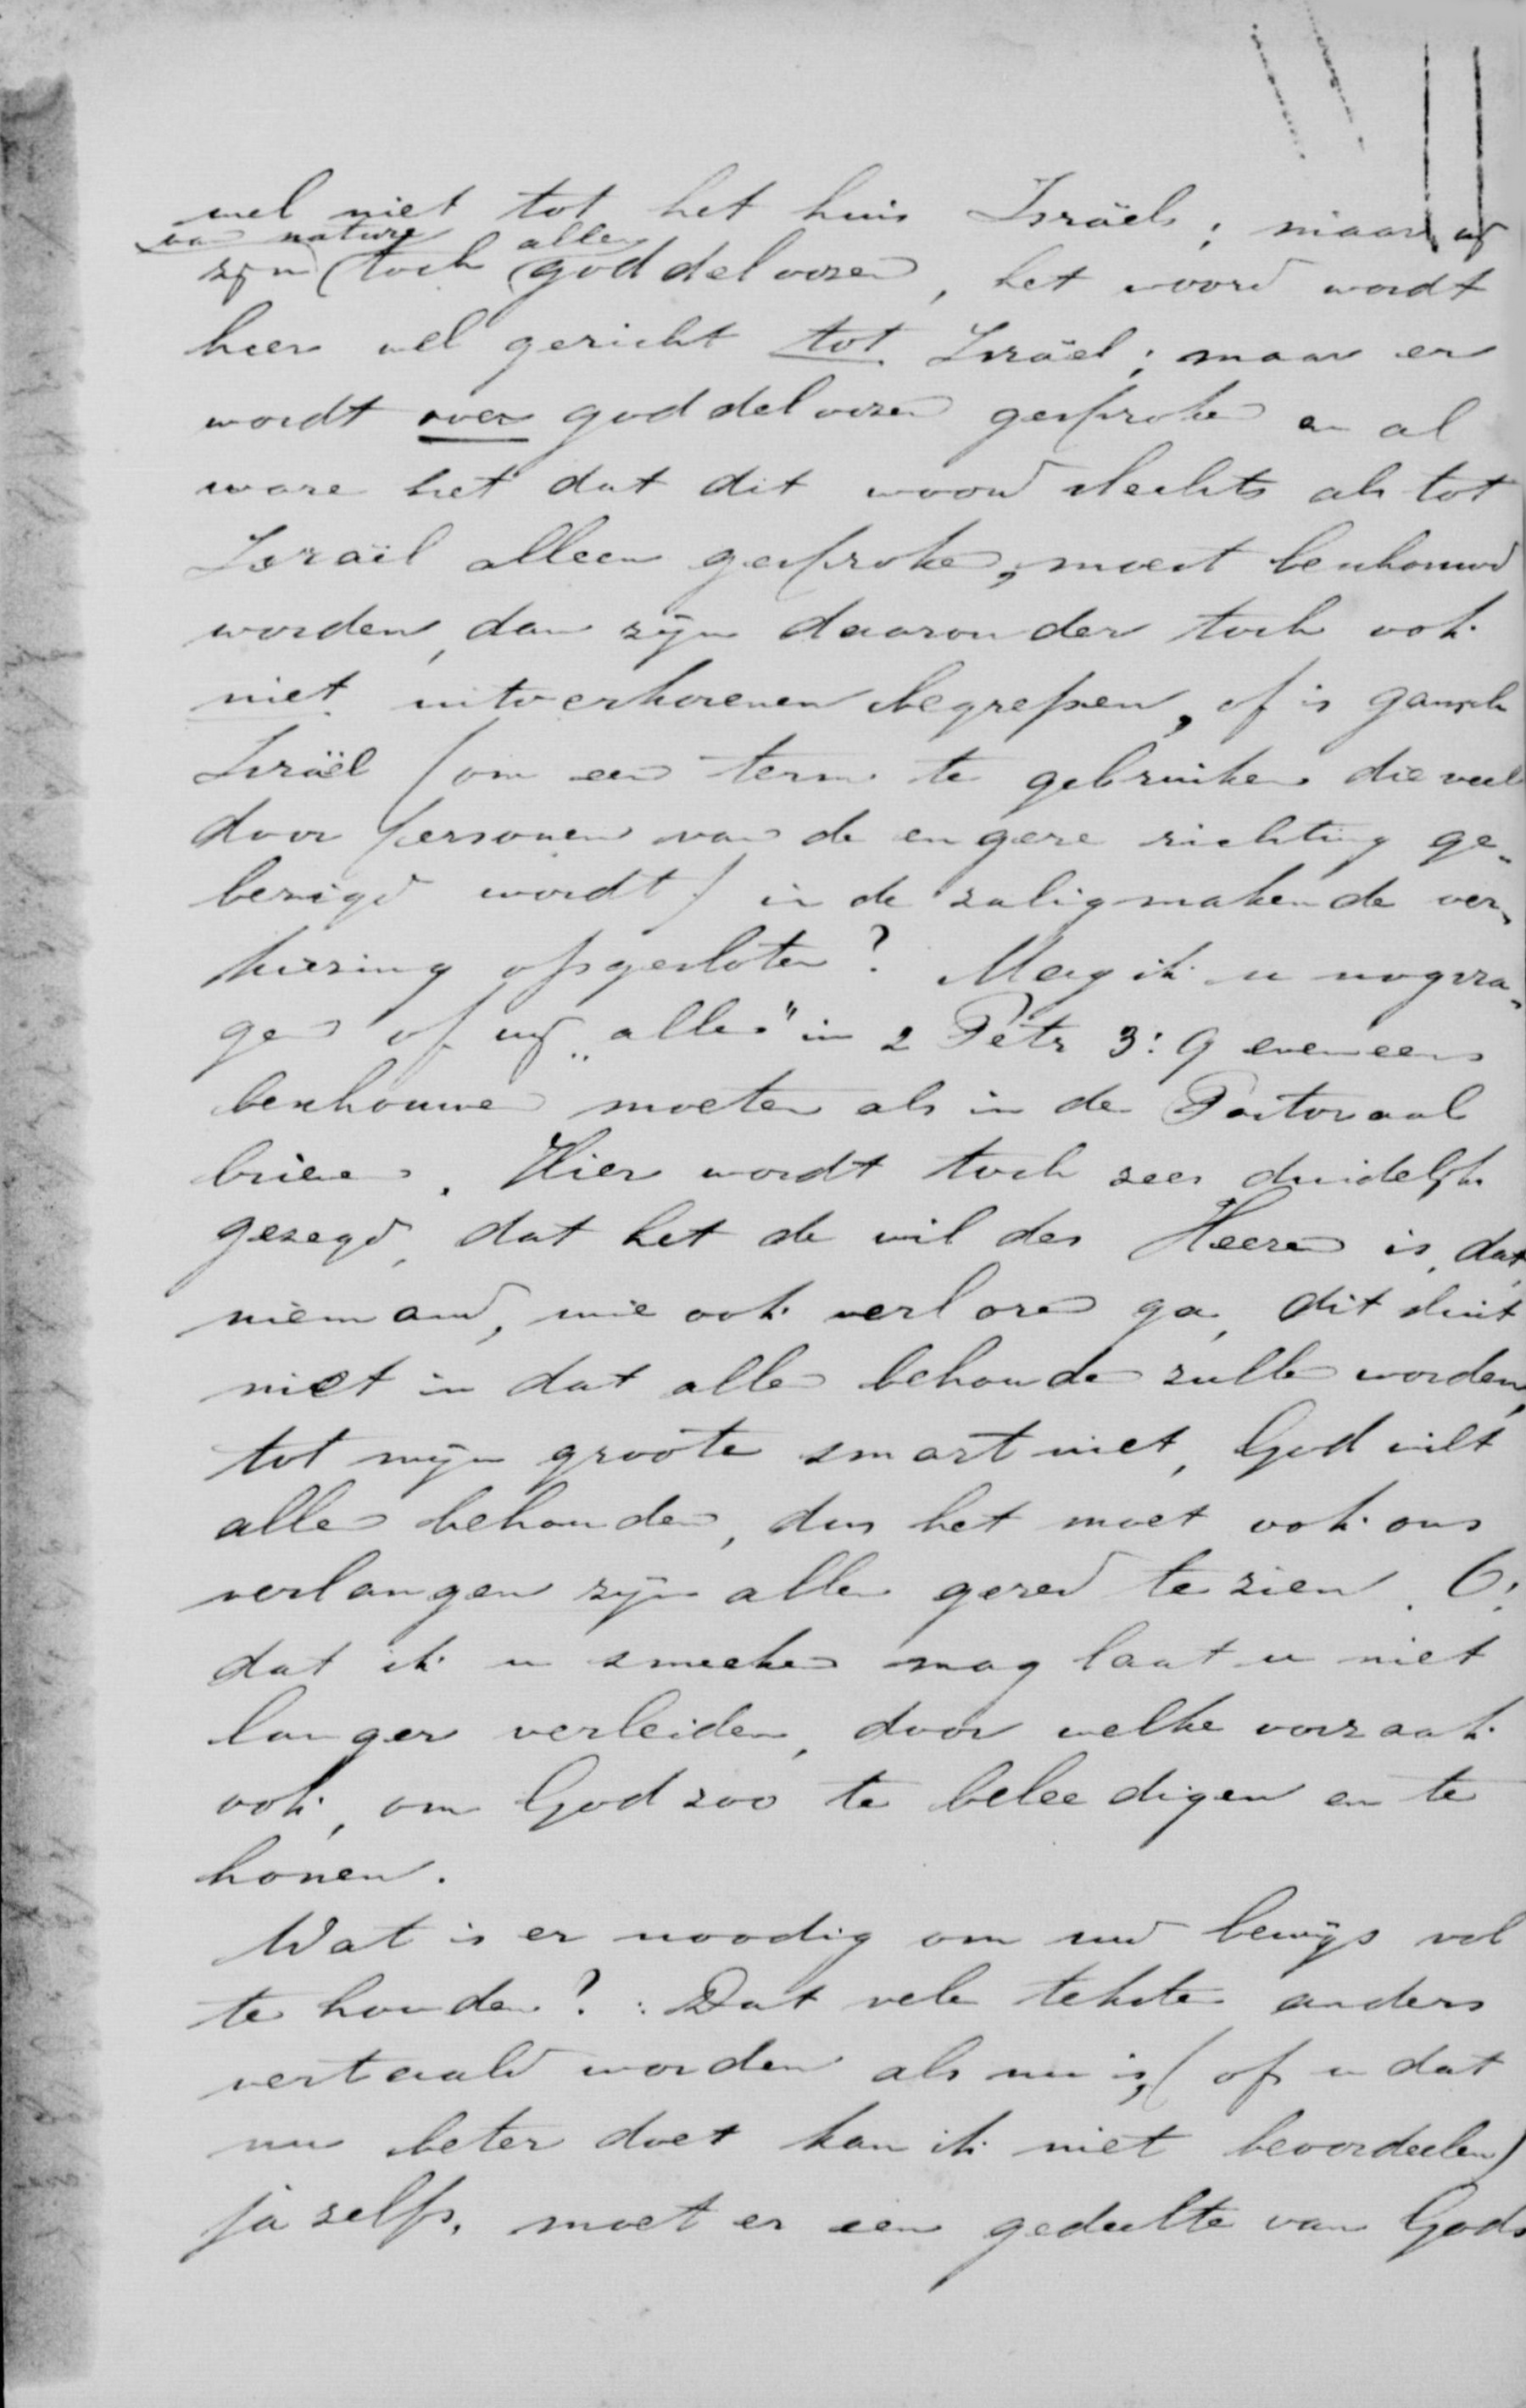 wel niet tot het huis Israëls; maar wij
van nature allen
zijn toch goddeloozen, het woord wordt
hier wel gericht tot Israël; maar er
wordt over goddeloozen gesproken en al
ware het dat dit woord slechts als tot
Israël alleen gesproken, moest beschouwd
worden, dan zijn daaronder toch ook
niet uitverkorenen begrepen, of is gansch
Israël (om een term te gebruiken die veel
door personen van de engere richting ge-
bezigd wordt) in de zaligmakende ver-
kiezing opgesloten? Mag ik u nog vra-
gen of wij "allen" in 2 Petr 3:9 eveneens
beschouwen moeten als in de Pastoraal
brieven. Hier wordt toch zeer duidelijk
gezegd, dat het de wil des Heeren is, dat
niemand, wie ook verloren ga, dit sluit
niet in dat allen behouden zullen worden,
tot mijn groote smart niet, God wilt
allen behouden, dus het moet ook ons
verlangen zijn allen gered te zien. O!
dat ik u smeeken mag laat u niet
langer verleiden, door welke oorzaak
ook, om God zoo te beleedigen en te
honen.
Wat is er noodig om uw bewijs vol
te houden? : Dat vele teksten anders
vertaald worden als nu is, (of u dat
nu beter doet kan ik niet beoordeelen)
ja zelfs, moet er een gedeelte van Gods